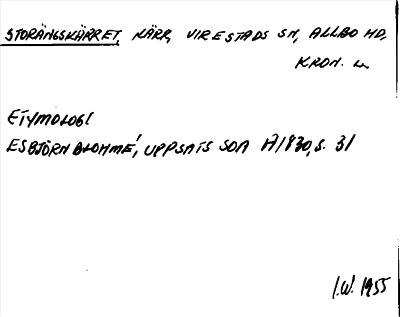 STORÄNGSKÄRRET, KÄRR, VIRESTADS SN, ALLBO HD,
KRON. L.
ETYMOLOGI
ESBJÖRN BLOHMÉ, UPPSATS SOA Ä1830, S. 31
I.W. 1955